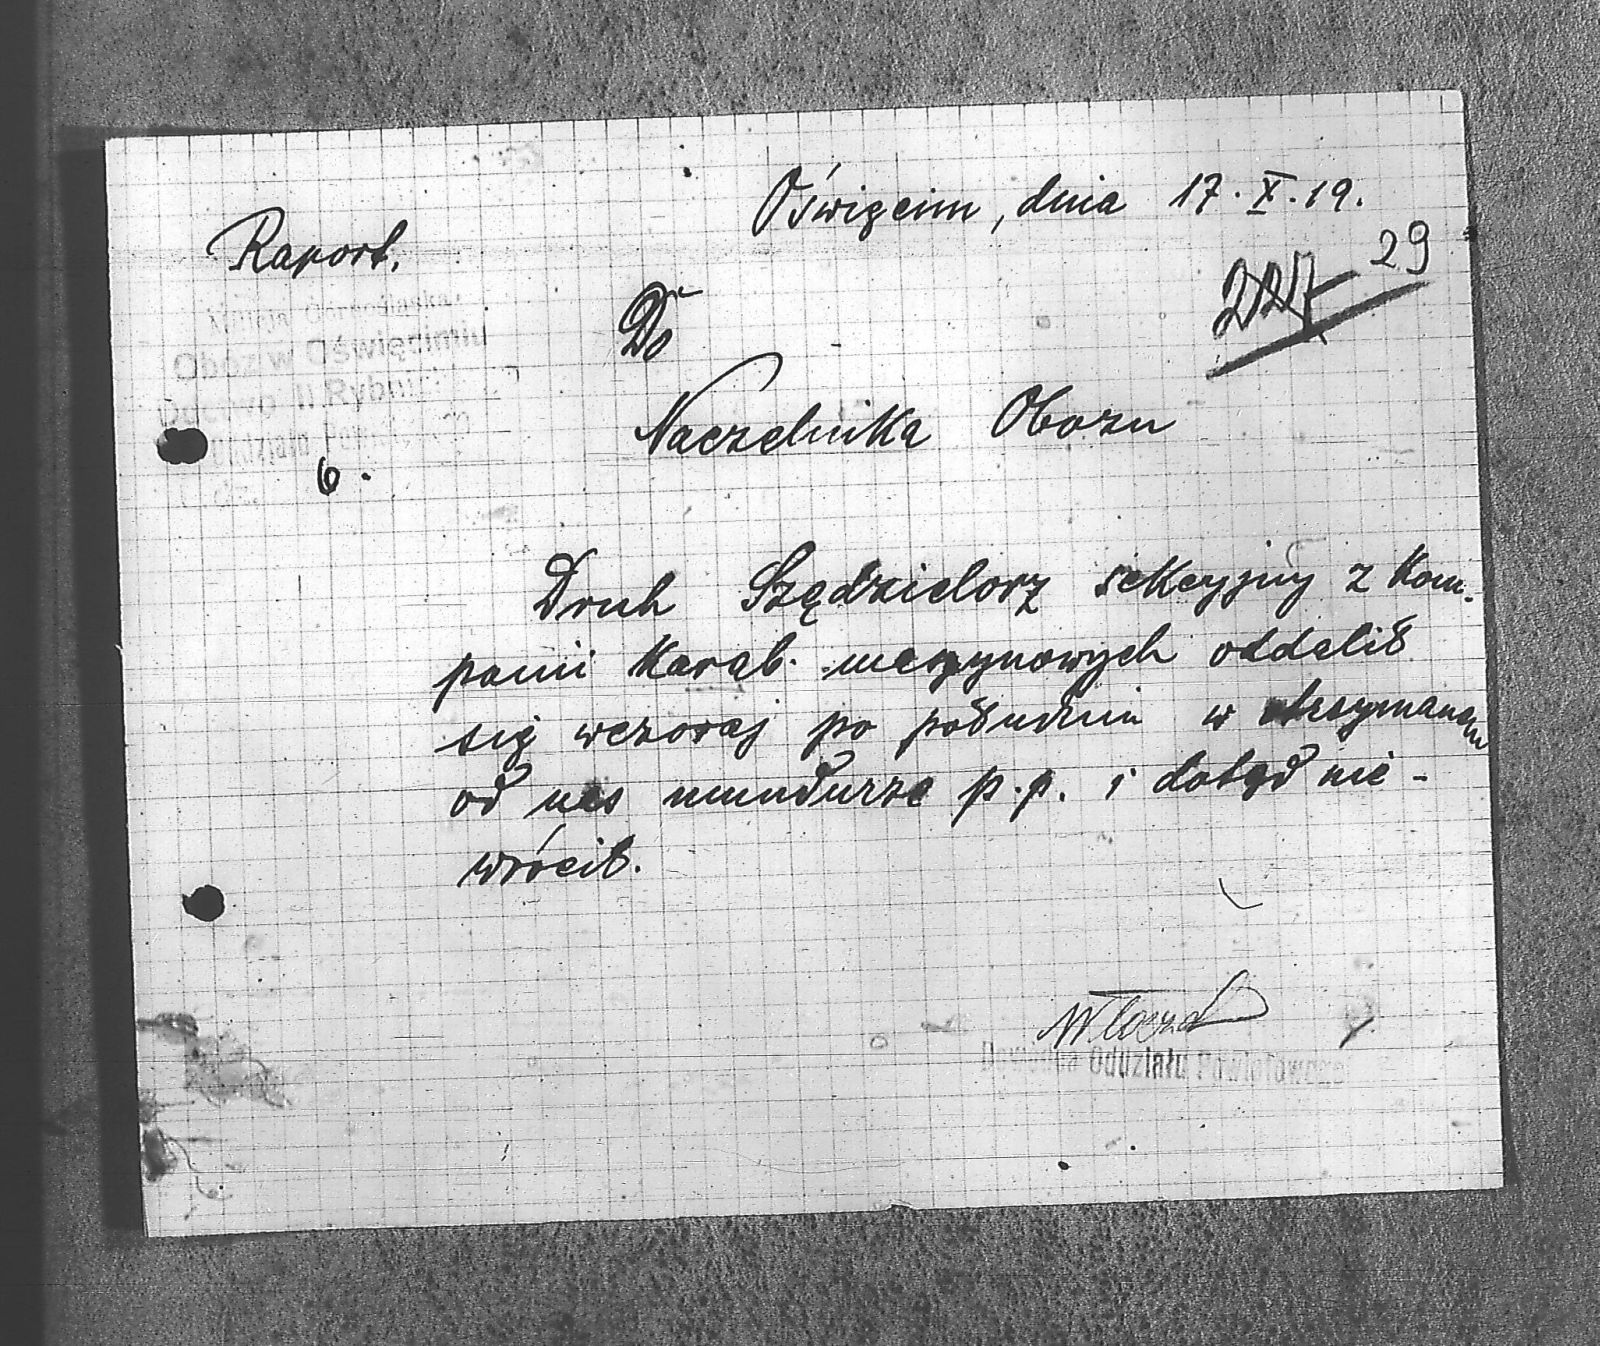 Oświęcim, dnia 17.X.19.
Raport.
29
Milicja Górnośląska
Obóz w Oświęcimiu
II Rybnik
6.
Do
Naczelnika Obozu
Druh Szędzielorz sekcyjny z Kom-
panii Karab. maszynowych oddalił
się wczoraj po południu w otrzymanem
od nas mundurze p.p. i dotąd nie-
wrócił.
Dowódca Oddziału Powiatowego